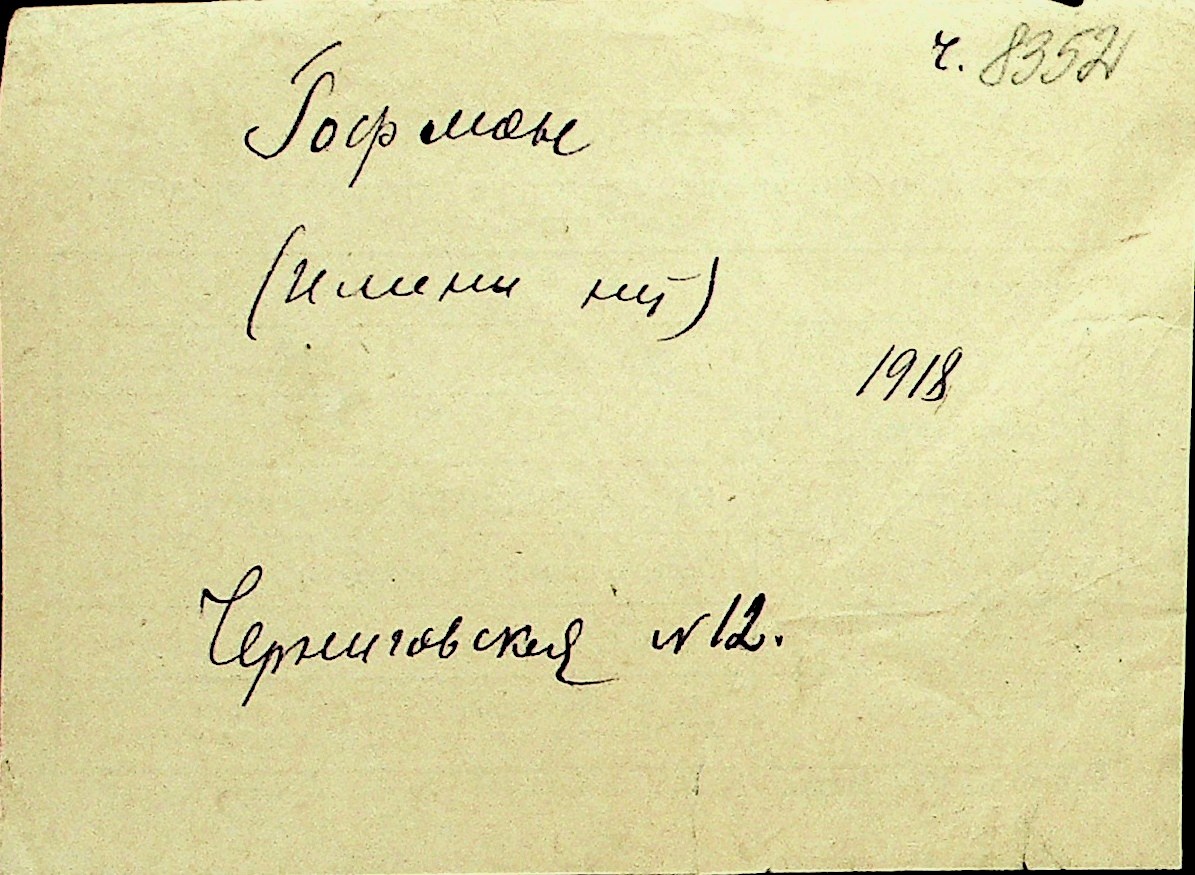 ч. 8352
Гофман
(Имени нет)
1918
Черниговская N 12.